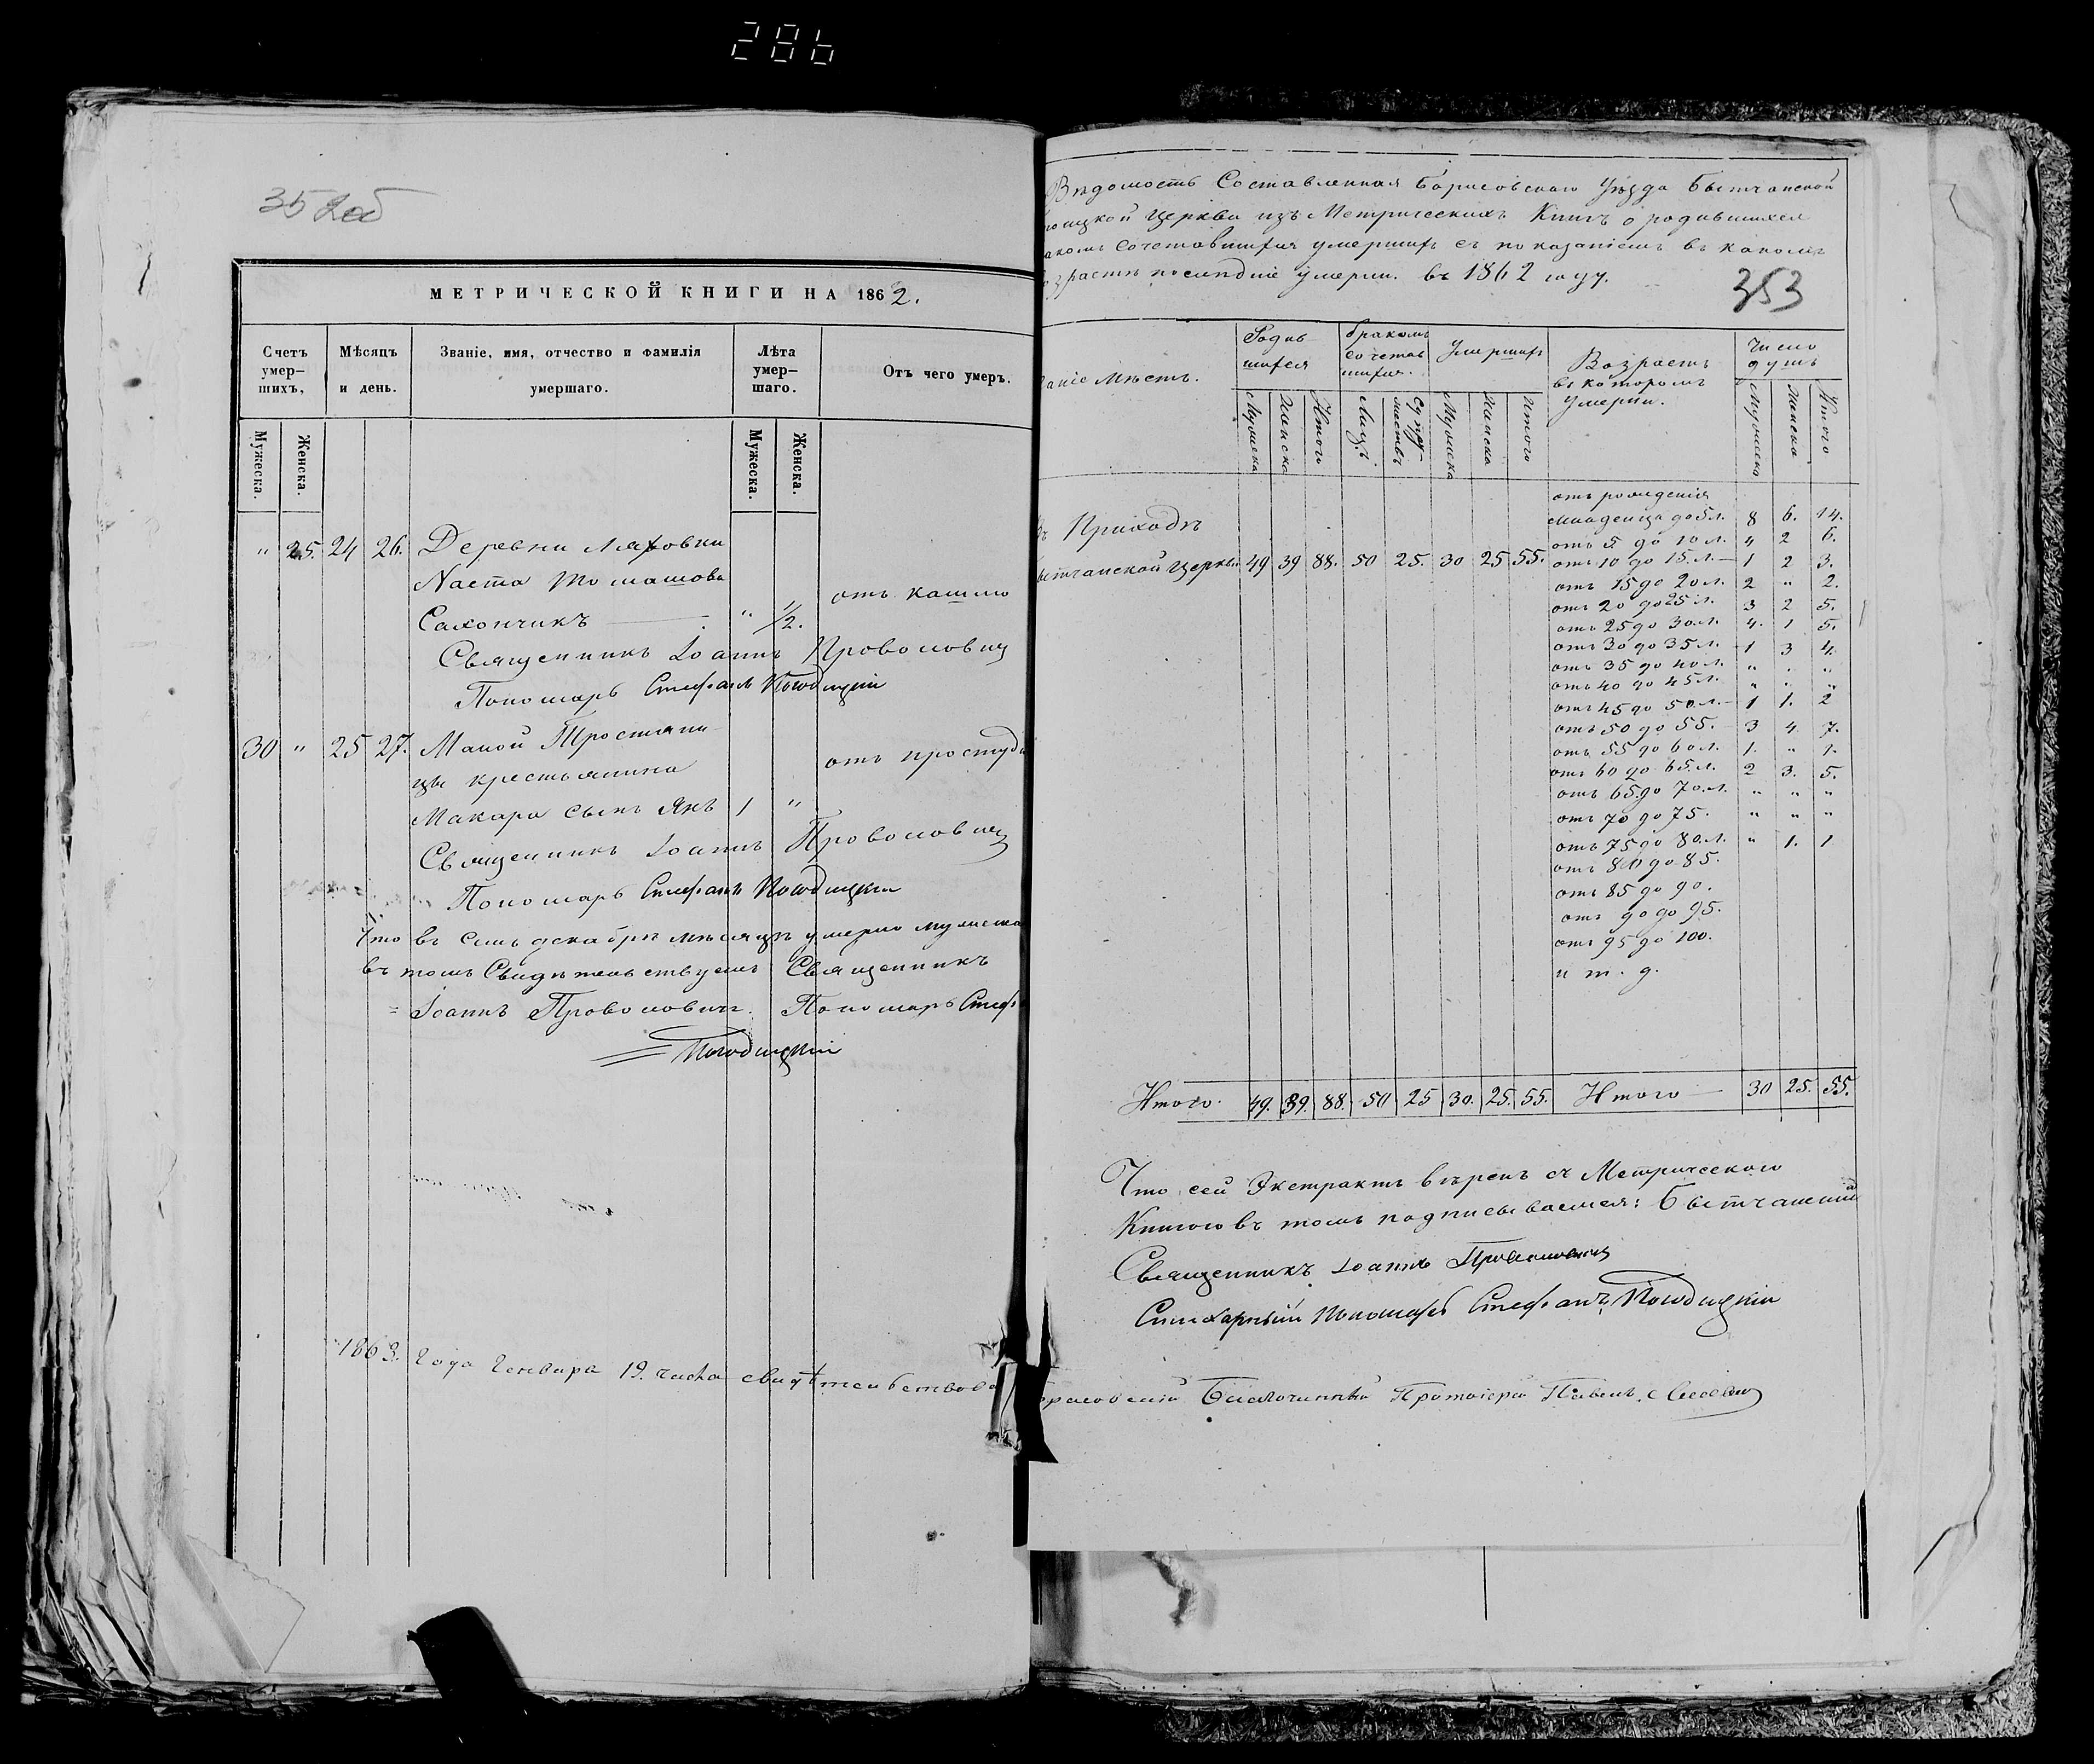 286
352об
МЕТРИЧЕСКОЙ КНИГИ НА 1862.
Счетъ умер-шихъ,
Мѣсяцъ и день.
Званіе, имя, отчество и фамилія умершаго.
Лѣта умер-шаго.
Отъ чего умеръ.
Мужеска.
Женска.
Мужеска.
Женска.
" 25. 24 26. Деревни Ляховки
Наста Томашова
отъ кашлю
Сахончикъ — " 1/2.
Священникъ Іоаннъ Проволовичъ
Пономарь Стефанъ
30 " 25 27. Малой Тростяни-
цы крестьянина
отъ простуды
Макара сынъ Янъ 1 "
Священникъ Іоаннъ Проволовичъ
Пономарь Стефанъ
Что въ семъ декабрѣ мѣсяцѣ умерло мужеска
въ томъ Свидѣтельствуемъ Священникъ
Іоаннъ Проволовичъ. Пономарь Стеф
1863. Года Генваря 19. числа свидѣтельствова
Вѣдомость Составленная Борисовскаго Уѣзда Бытчанской
оицкой Церкви изъ Метрическихъ Книгъ о родившихся
акомъ сочетавшихся умершихъ съ показаніемъ въ какомъ
зрастѣ послѣдніе умерли. въ 1862 году.
353
ваніе мѣстъ.
Родив шихся
бракомъ сочетав шихся.
Умершихъ
Возрастъ въ которомъ умерли.
Число душъ
Мужеска
Женска
Итого
Лицъ
Супру-жествъ
Мужеска
Женска
Итого
Мужеска
Женска
Итого
въ Приходѣ
ытчанской Церкви 49 39 88. 50 25. 30 25 55.
отъ рожденія
младенца до 5 л. 8 6. 14.
отъ 5 до 10 л. 4 2 6.
отъ 10 до 15. л. — 1 2 3.
отъ 15 до 20 л. 2 " 2.
отъ 20 до 25 л. 3 2 5.
отъ 25 до 30 л. 4. 1 5.
отъ 30 до 35 л. — 1 3 4.
отъ 35 до 40 л. " " "
отъ 40 до 45 л. " " "
отъ 45 до 50 л. — 1 1. 2
отъ 50 до 55. — 3 4 7.
отъ 55 до 60 л. 1. " 1.
отъ 60 до 65. л. 2 3. 5.
отъ 65. до 70. л. " " "
отъ 70 до 75. " " "
отъ 75 до 80. л. " 1. 1
отъ 80 до 85.
отъ 85 до 90.
отъ 90 до 95.
отъ 95 до 100.
и т. д.
Итого. 49. 39. 88. 50 25 30. 25. 55. Итого — 30 25. 55.
Что сей Экстрактъ вѣренъ съ Метрическою
Книгою въ томъ подписываемся: Бытчанскій
Священникъ Іоаннъ Проволовичъ
Стихарный Пономарь Стефанъ
Благочинный Протоіерей Павелъ